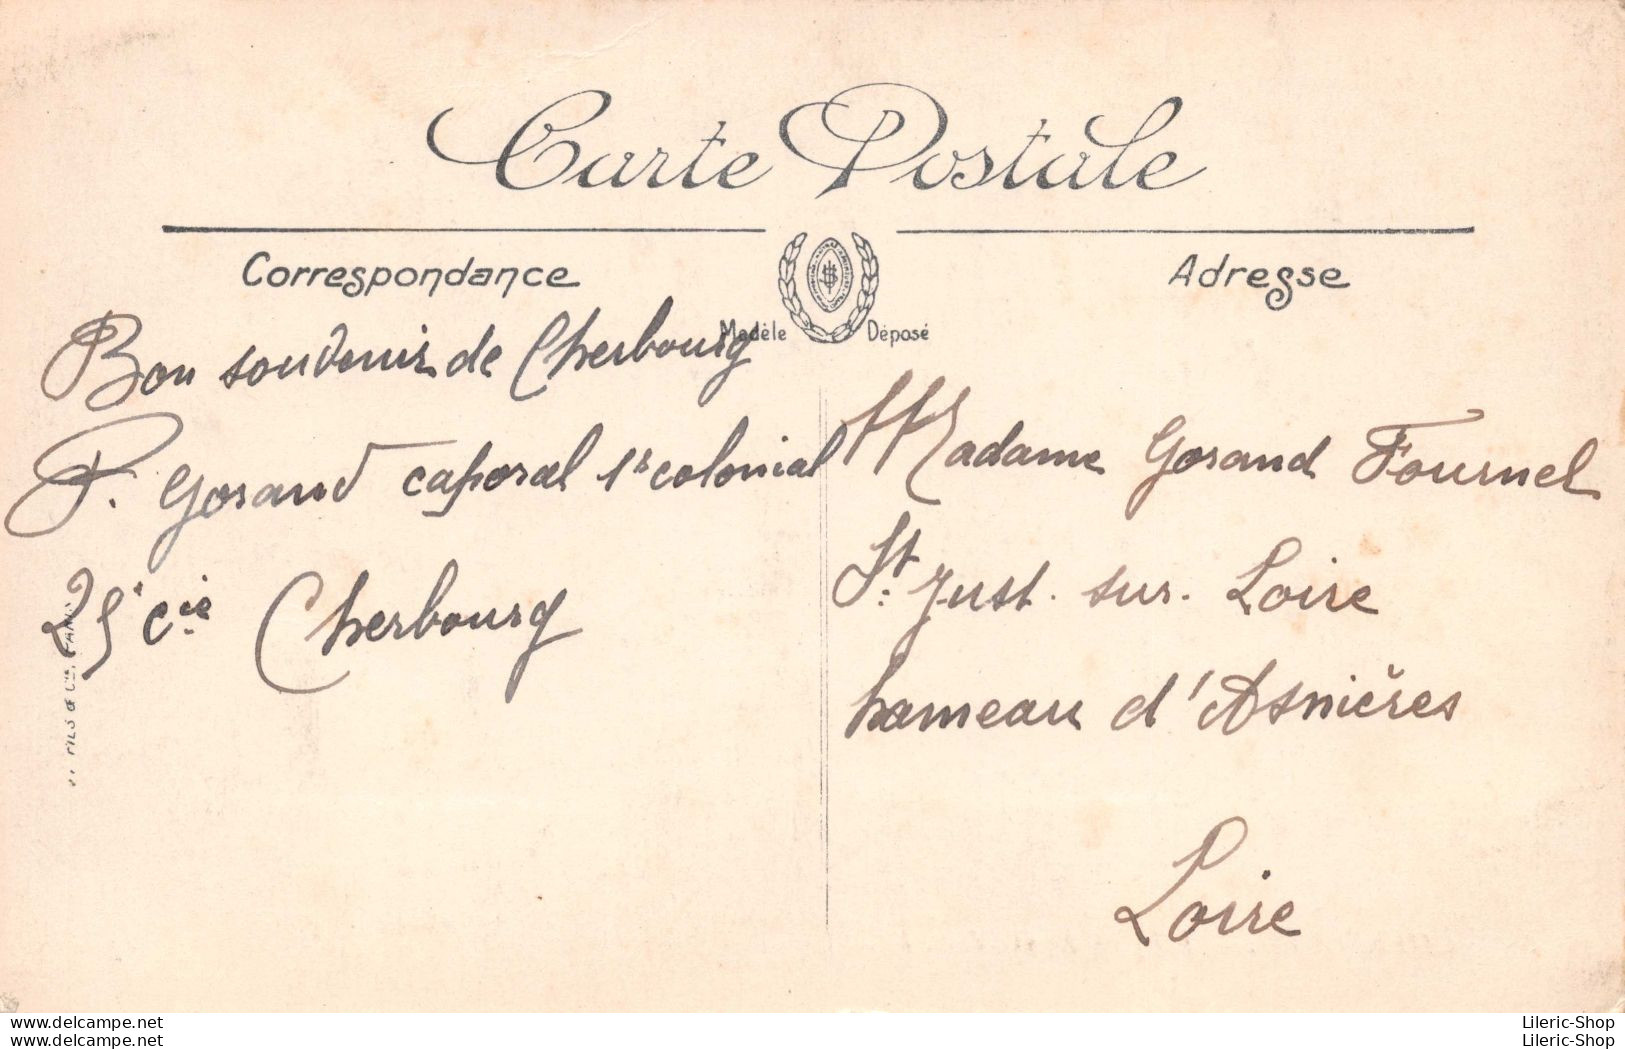 Carte Postale
Correspondance
Adresse
Modèle Déposé
Bon souvenir de Cherbourg
P. Gorand caporal 1r colonial
25e cie Cherbourg
Madame Gorand Fournel
St. Just. sur. Loire
hameau d'Asnières
Loire
FILS & Cie, PARIS
www.delcampe.net
www.delcampe.net
Lileric-Shop
Lileric-Shop